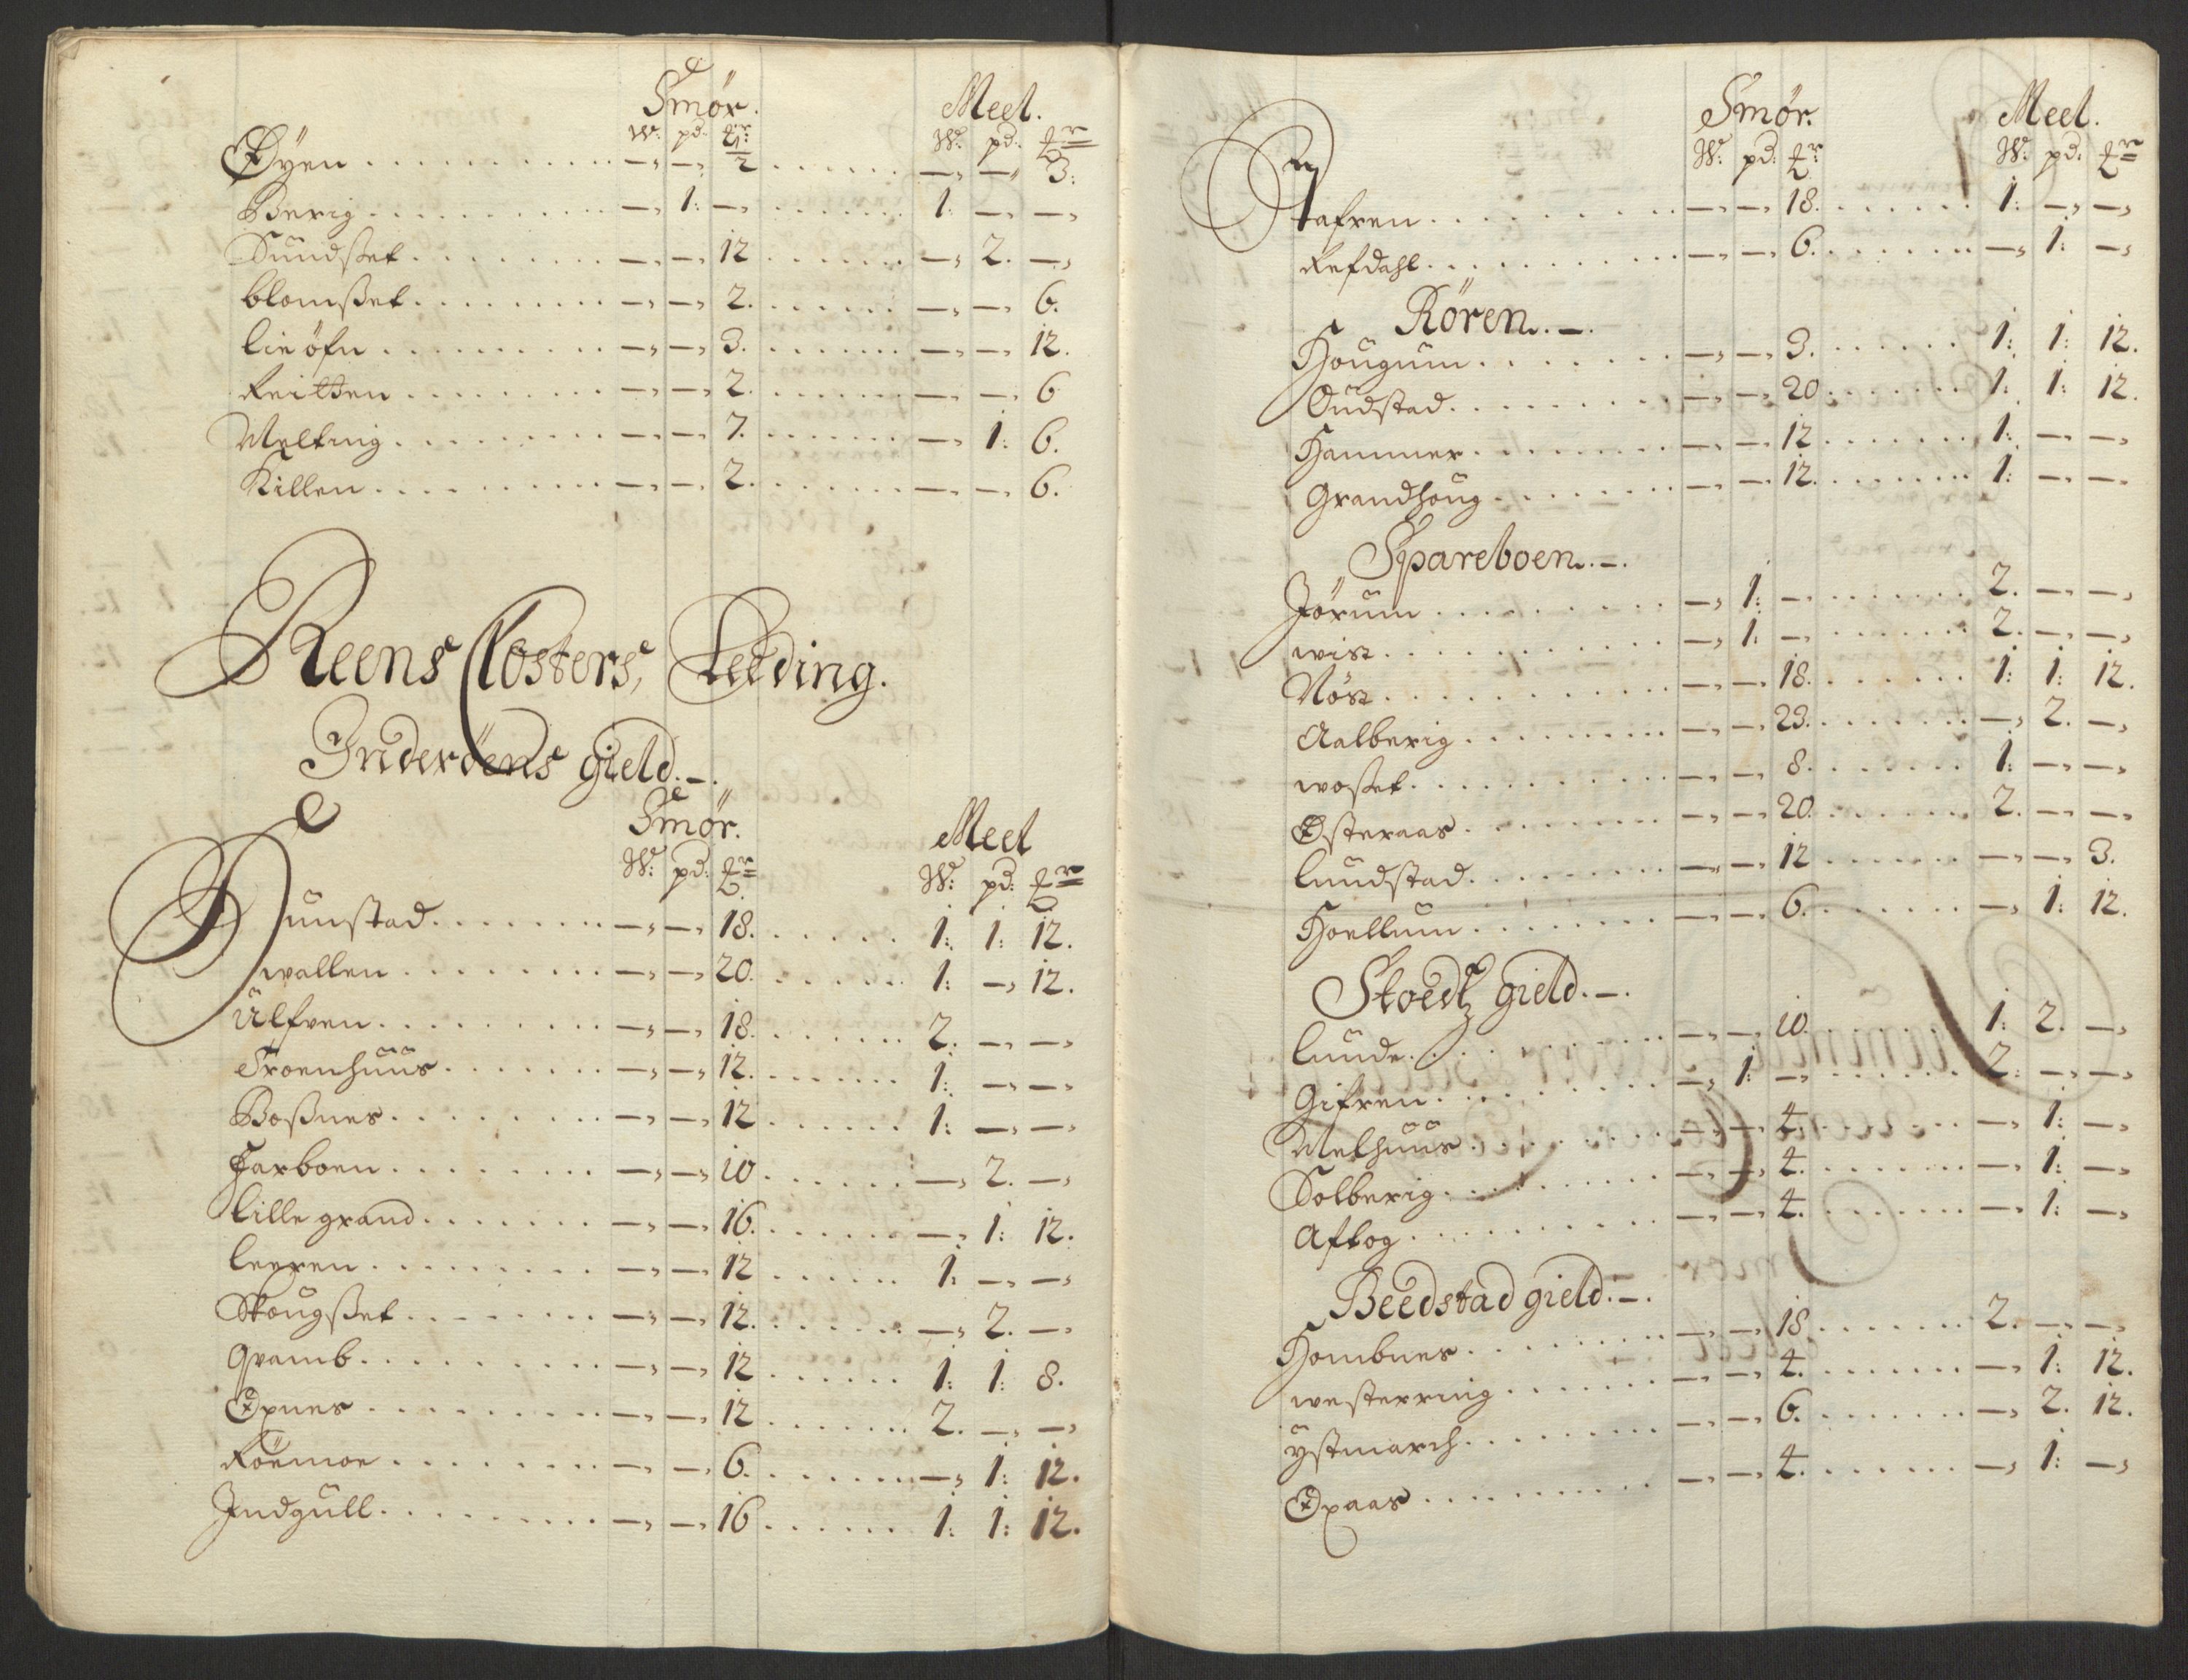 Smør. Meel.
W: pd: ℔r W: pd: ℔r
Øyen . . . —, —, ½ . . . —, —, 3:
Berig . . . —, 1: —, . . . 1: —, —,
Sundsset . . . —, —, 12 . . . —, 2. —,
blomsset . . . —, —, 2. . . . —, —, 6.
lieöfn . . . —, —, 3. . . . —, —, 12.
Reitten . . . —, —, 2. . . . —, —, 6
Melting . . . —, —, 7. . . . —, 1: 6.
Killen . . . —, —, 2. . . . —, —, 6.
Reens Closters, Leeding.
Inderöens gield.—.
Smør. Meel
W: pd: ℔r W: pd: ℔r
Dunstad . . . —, —, 18. . . . 1: 1: 12.
wallen . . . —, —, 20. . . . 1: —, 12.
Ulfven . . . —, —, 18. . . . 2. —, —,
Troenhuus . . . —, —, 12. . . . 1: —, —,
Bossnes . . . —, —, 12 . . . 1: —, —,
Farboen . . . —, —, 10 . . . —, 2. —,
lille grand . . . —, —, 16. . . . —, 1: 12.
leeren . . . —, —, 12 . . . 1: —, —,
Skougsset . . . —, —, 12. . . . —, 2. —,
Qvamb . . . —, —, 12 . . . 1: 1: 8.
Øxnes . . . —, —, 12 . . . 2. —, —,
Röemoe . . . —, —, 6. . . . —, 1: 12.
Indgull . . . —, —, 16 . . . 1: 1: 12.
Smør. Meel.
W: pd: ℔r W: pd: ℔r
. . . —, —, 18. . . . 1: —, —,
Refdahl . . . —, —, 6. . . . —, 1: —,
Rören.—.
Hougum . . . —, —, 3. . . . 1: 1: 12.
Oudstad . . . —, —, 20 . . . 1: 1: 12.
Hammer . . . —, —, 12 . . . 1: —, —,
Grandhoug . . . —, —, 12. . . . 1: —, —,
Spareboen.—.
Jörum . . . —, 1: —, . . . 2. —, —,
wist . . . —, 1: —, . . . 2. —, —,
Nöst . . . —, —, 18. . . . 1: 1: 12.
Aalberig . . . —, —, 23. . . . —, 2. —,
wosset . . . —, —, 8. . . . 1: —, —,
Østeraas . . . —, —, 20. . . . 2. —, —,
lundstad . . . —, —, 12 . . . —, —, 3.
Hoellum . . . —, —, 6. . . . —, 1: 12.
Stoedtz gield.—.
lunde . . . —, —, 10. . . . 1: 2. —,
Gifren . . . —, 1: —, . . . 2. —, —,
Melhuus . . . —, —, 4. . . . —, 1: —,
Solberig . . . —, —, 4. . . . —, 1: —,
Aftog . . . —, —, 4. . . . —, 1: —,
Beedstad gield.—.
Hombnes . . . —, —, 18 . . . 2. —, —,
westerring . . . —, —, 4. . . . —, 1: 12.
ÿstmarch . . . —, —, 6. . . . —, 2. 12.
Øxaas . . . —, —, 4. . . . —, 1: —,